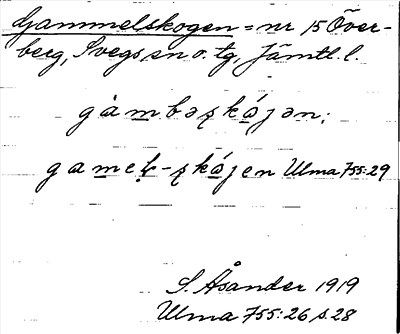 Gammelskogen = nr 15 Över-
berg, Svegs sn o. tg, Jämtl. l.
gàmbəskǻjən;
gameł-skǻjen Ulma 755:29
S. Åsander 1919
Ulma 755:26 s. 28